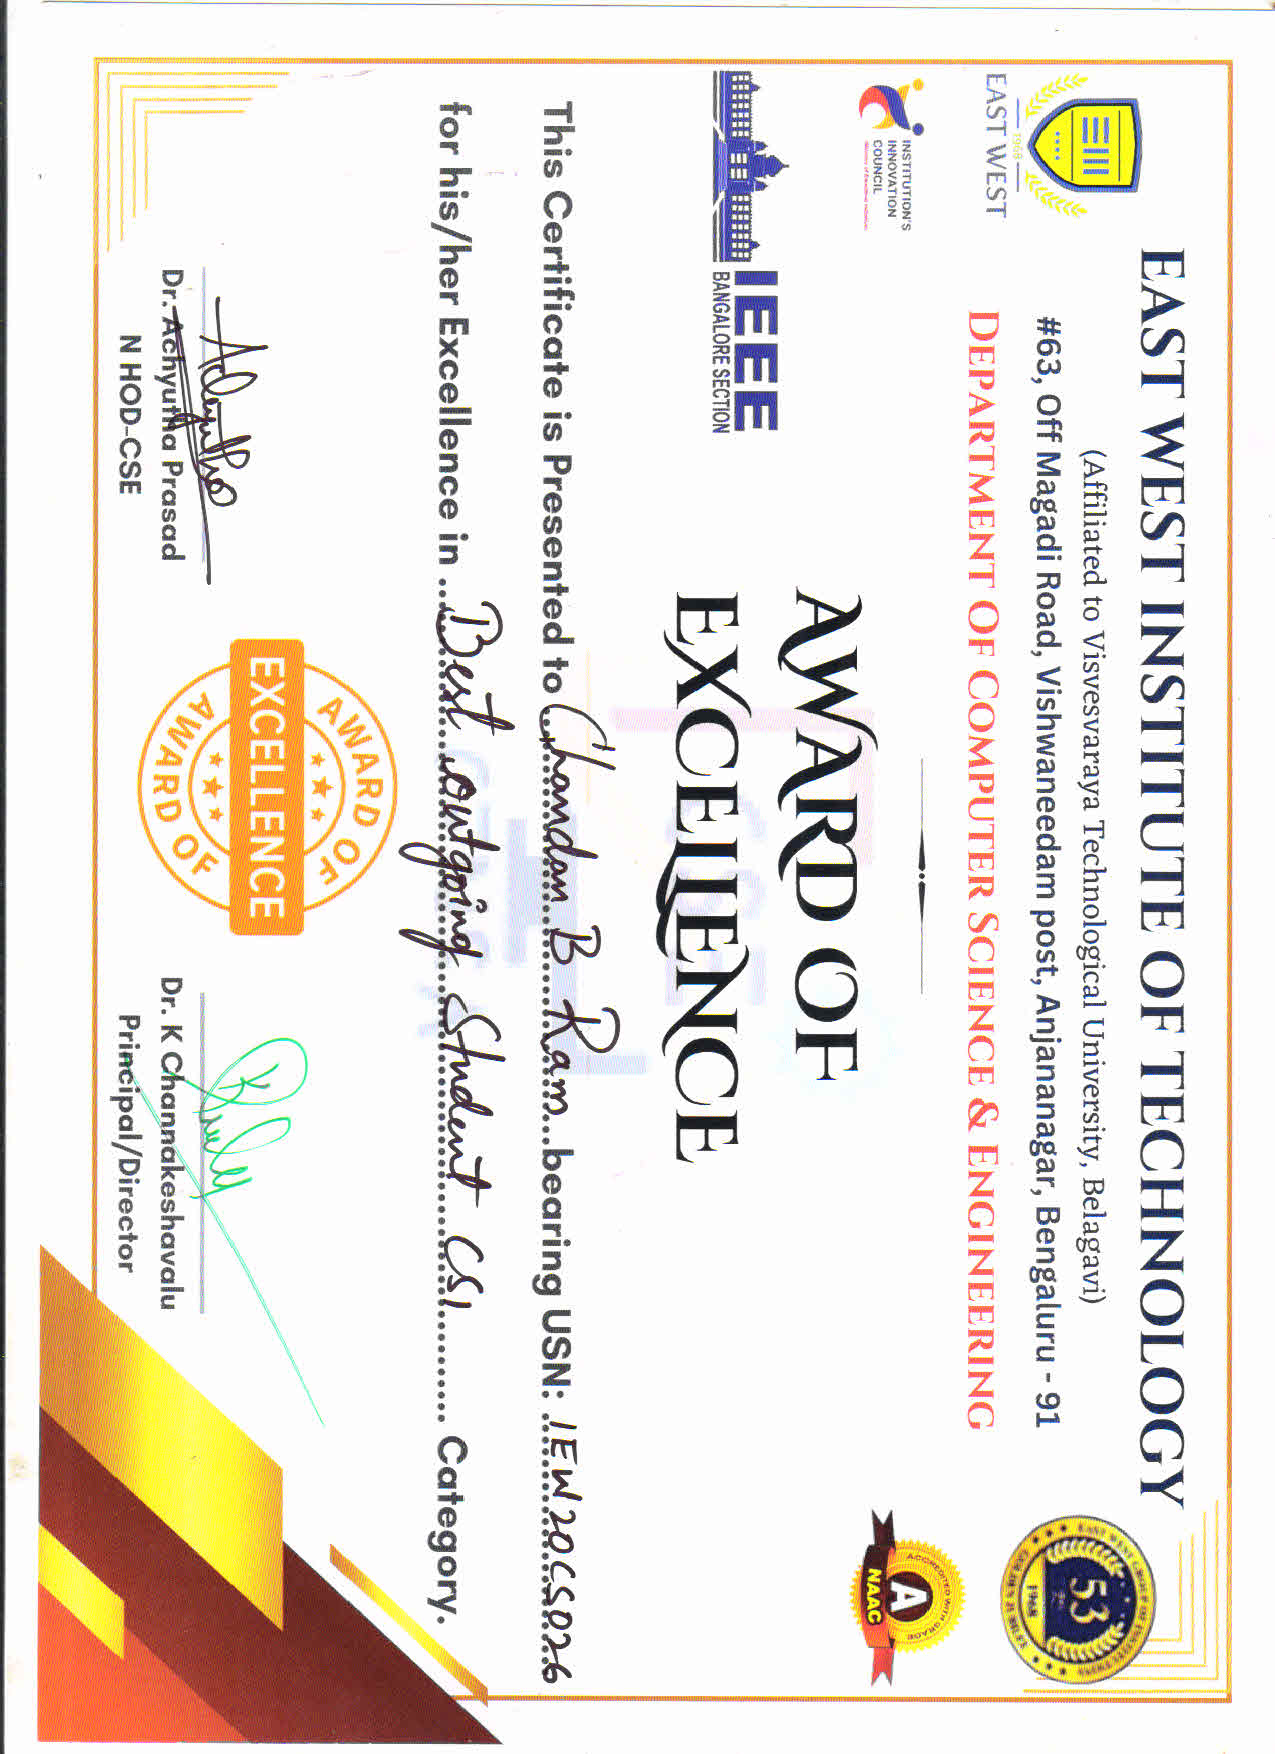 EAST WEST INSTITUTE OF TECHNOLOGY
(Affiliated to Visvesvaraya Technological University, Belagavi)
#63, Off Magadi Road, Vishwaneedam post, Anjananagar, Bengaluru - 91
DEPARTMENT OF COMPUTER SCIENCE & ENGINEERING
1968
EAST WEST
EAST WEST GROUP OF INSTITUTIONS
53
1968
GOLDEN JUBILEE
INSTITUTION'S
INNOVATION
COUNCIL
ACCREDITED WITH GRADE
A
NAAC
IEEE
BANGALORE SECTION
AWARD OF
EXCELLENCE
CSE
This Certificate is Presented to Chandan B Ram bearing USN: 1EW20CS026
for his/her Excellence in Best outgoing Student CSI Category.
AWARD OF
EXCELLENCE
AWARD OF
Dr. Achyutha Prasad
N HOD-CSE
Dr. K Channakeshavalu
Principal/Director